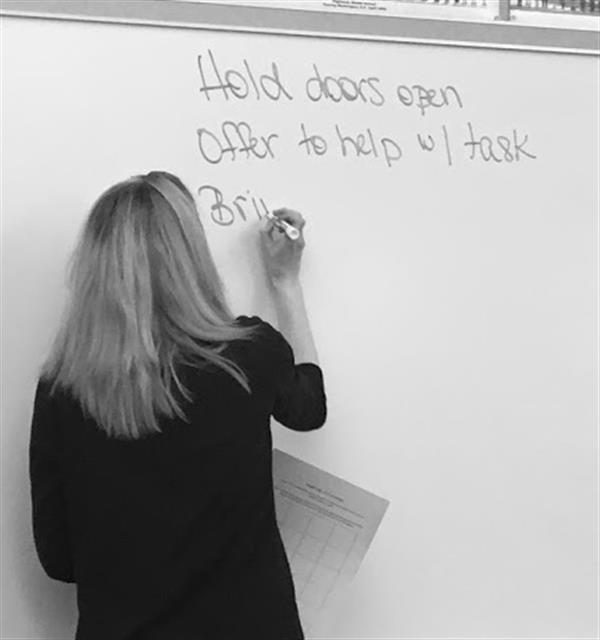 Hold doors open
Offer to help w/ task
Bri